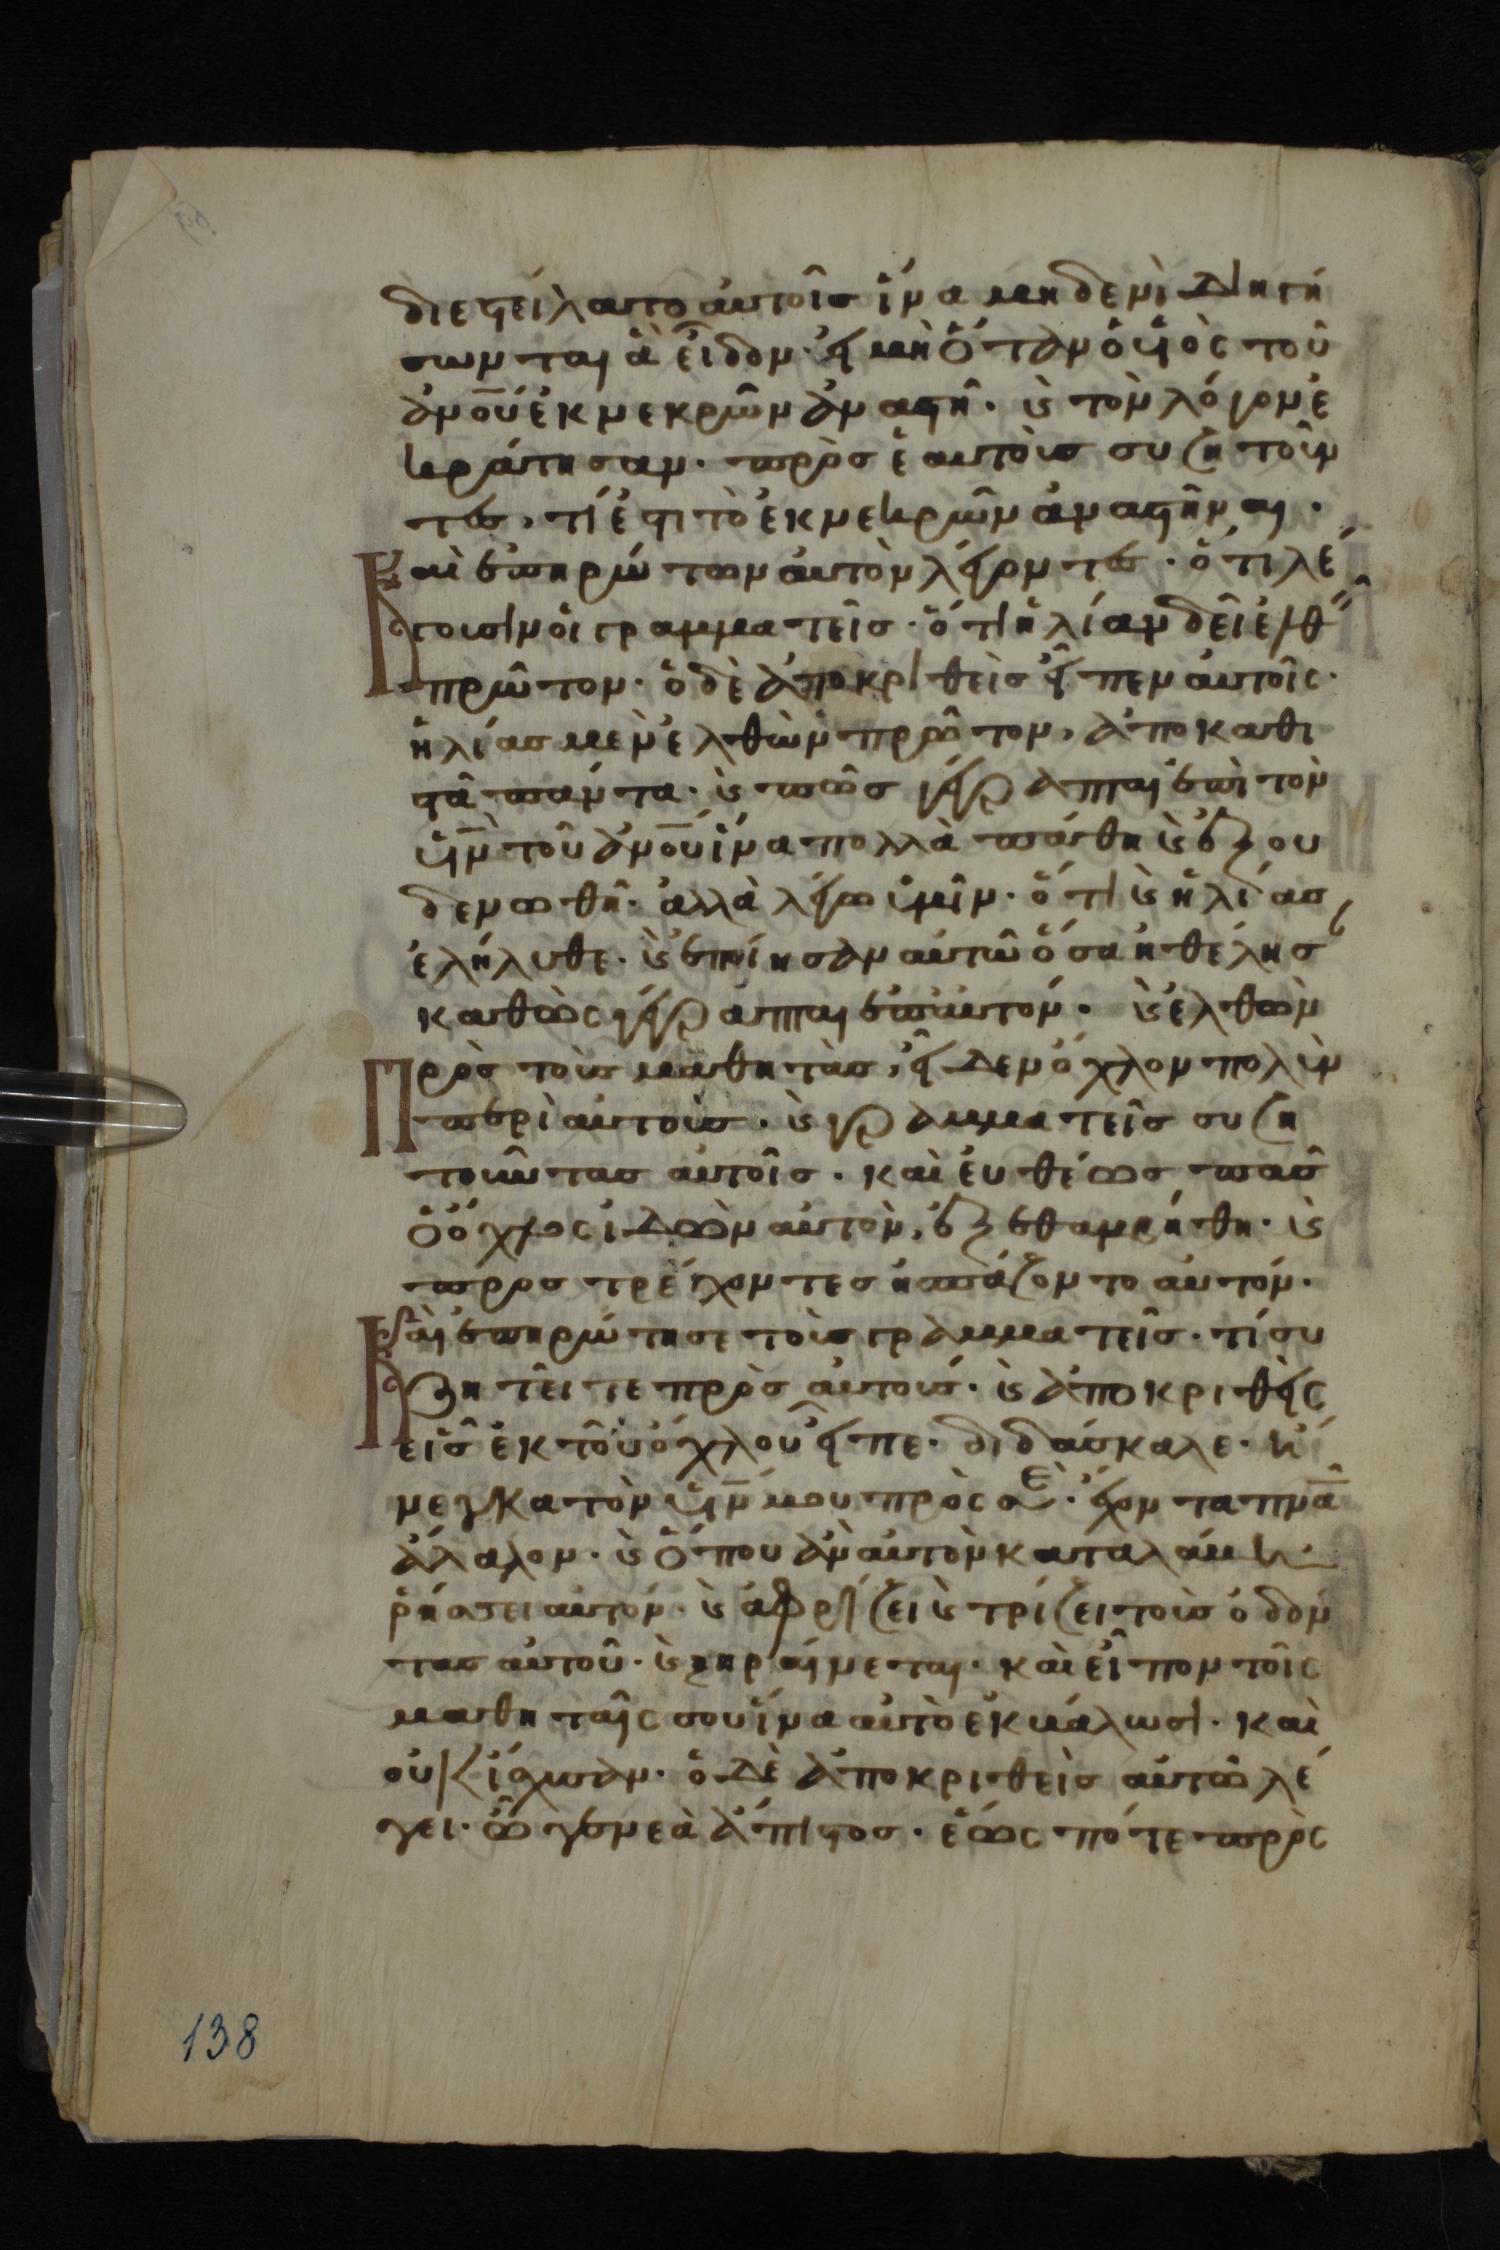 διεστείλατο αὐτοῖς ἵνα μηδενὶ διηγή
σωνται ἃ εἶδον· εἰ μὴ ὅταν ὁ υἱὸς τοῦ
ἀν̅ο̅υ̅ ἐκ νεκρῶν ἀναστῆ. κ̀ τὸν λόγον ἐ
κράτησαν. πρὸς ἑαυτοὺς συζητοῦν
τες, τί ἐστι τὸ ἐκ νεκρῶν ἀναστῆναι.
Καὶ ἐπηρώτων αὐτὸν λέγοντες. ὅτι λέ
γουσιν οἱ γραμματεῖς. ὅτι ἠλίαν δεῖ ἐλθεῖ
πρῶτον. ὁ δὲ ἀποκριθεὶς εἶπεν αὐτοῖς.
ἠλίας μὲν ἐλθὼν πρῶτον, ἀποκαθι
στᾶ πάντα. κ̀ πῶς γέγραπται ἐπὶ τὸν
υἱν̅ τοῦ ἀν̅ο̅υ̅ ἵνα πολλὰ πάθη κ̀ ἐξου
δενωθῆ. ἀλλὰ λέγω ὑμῖν. ὅτι κ̀ ἠλίας
ἐλήλυθε. κ̀ ἐποίησαν αὐτῶ ὅσα ἠθέλησ
καθὼς γέγραπται ἐπ αὐτόν. κ̀ ἐλθὼν
Πρὸς τοὺς μαθητὰς, εἶδεν ὄχλον πολὺν
περὶ αὐτούς. κ̀ γραμματεῖς συζη
τοῦντας αὐτοῖς. καὶ εὐθέως πᾶς
ὁ ὄχλος ἰδὼν αὐτὸν, ἐξεθαμβήθη. κ̀
προστρέχοντες ἠσπάζοντο αὐτόν.
Καὶ ἐπηρώτησε τοὺς γραμματεῖς. τί συ
ζητεῖτε πρὸς αὐτούς. κ̀ ἀποκριθεὶς
εἷς ἐκ τοῦ ὄχλου εἶπε. διδάσκαλε. ἤ
νεγκα τὸν υἱν̅ μου πρὸς σὲ. ἔχοντα πν̅α̅
ἄλαλον. κ̀ ὅπου ἂν αὐτὸν καταλάβη
ῥήσσει αὐτόν. κ̀ ἀφρίζει κ̀ τρίζει τοὺς ὀδόν
τας αὐτοῦ. κ̀ ξηραίνεται. καὶ εἶπον τοῖς
μαθηταῖς σου ἵνα αὐτὸ ἐκβάλωσι. καὶ
οὐκ ἴσχυσαν. ὁ δὲ ἀποκριθεὶς αὐτῶ λέ
γει. ὦ γενεὰ ἄπιστος. ἕως πότε πρὸς
138